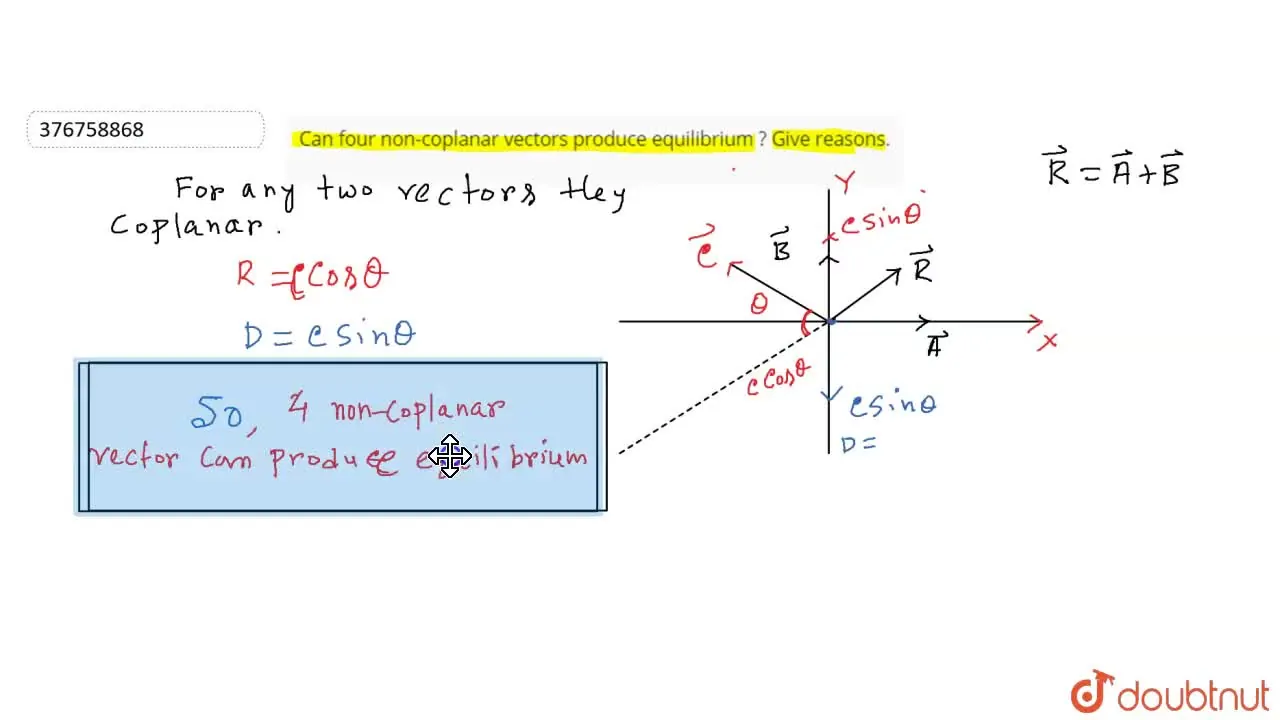 376758868
Can four non-coplanar vectors produce equilibrium ? Give reasons.
For any two vectors they
Coplanar.
R = C Cosθ
D = C sinθ
So, 4 non-coplanar
vector can produce equilibrium
R⃗ = A⃗ + B⃗
Y
C sinθ
C⃗
B⃗
R⃗
θ
A⃗
X
C Cosθ
C sinθ
D =
doubtnut